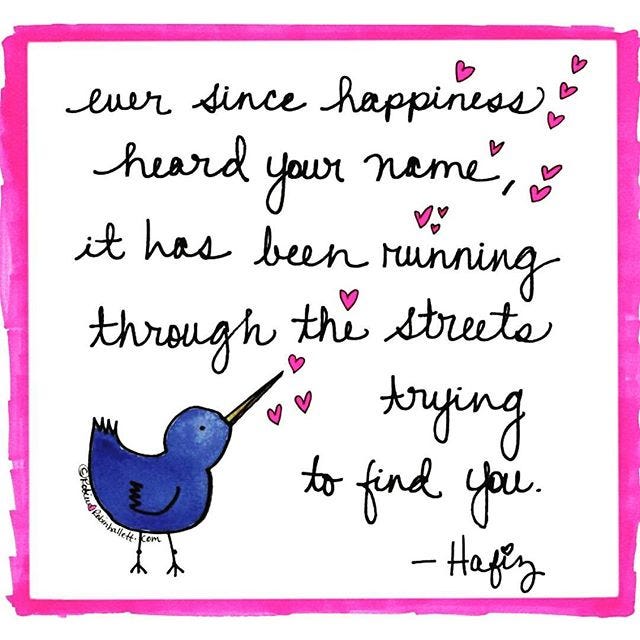 ever since happiness
heard your name,
it has been running
through the streets
trying
to find you.
— Hafiz
© Robin Robinhallett.com